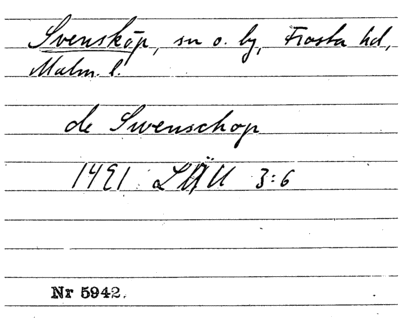 Svensköp, sn o. by, Frosta hd,
Malm. l.
de Swenschop
1491 LÄU 3:6
Nr 5942.